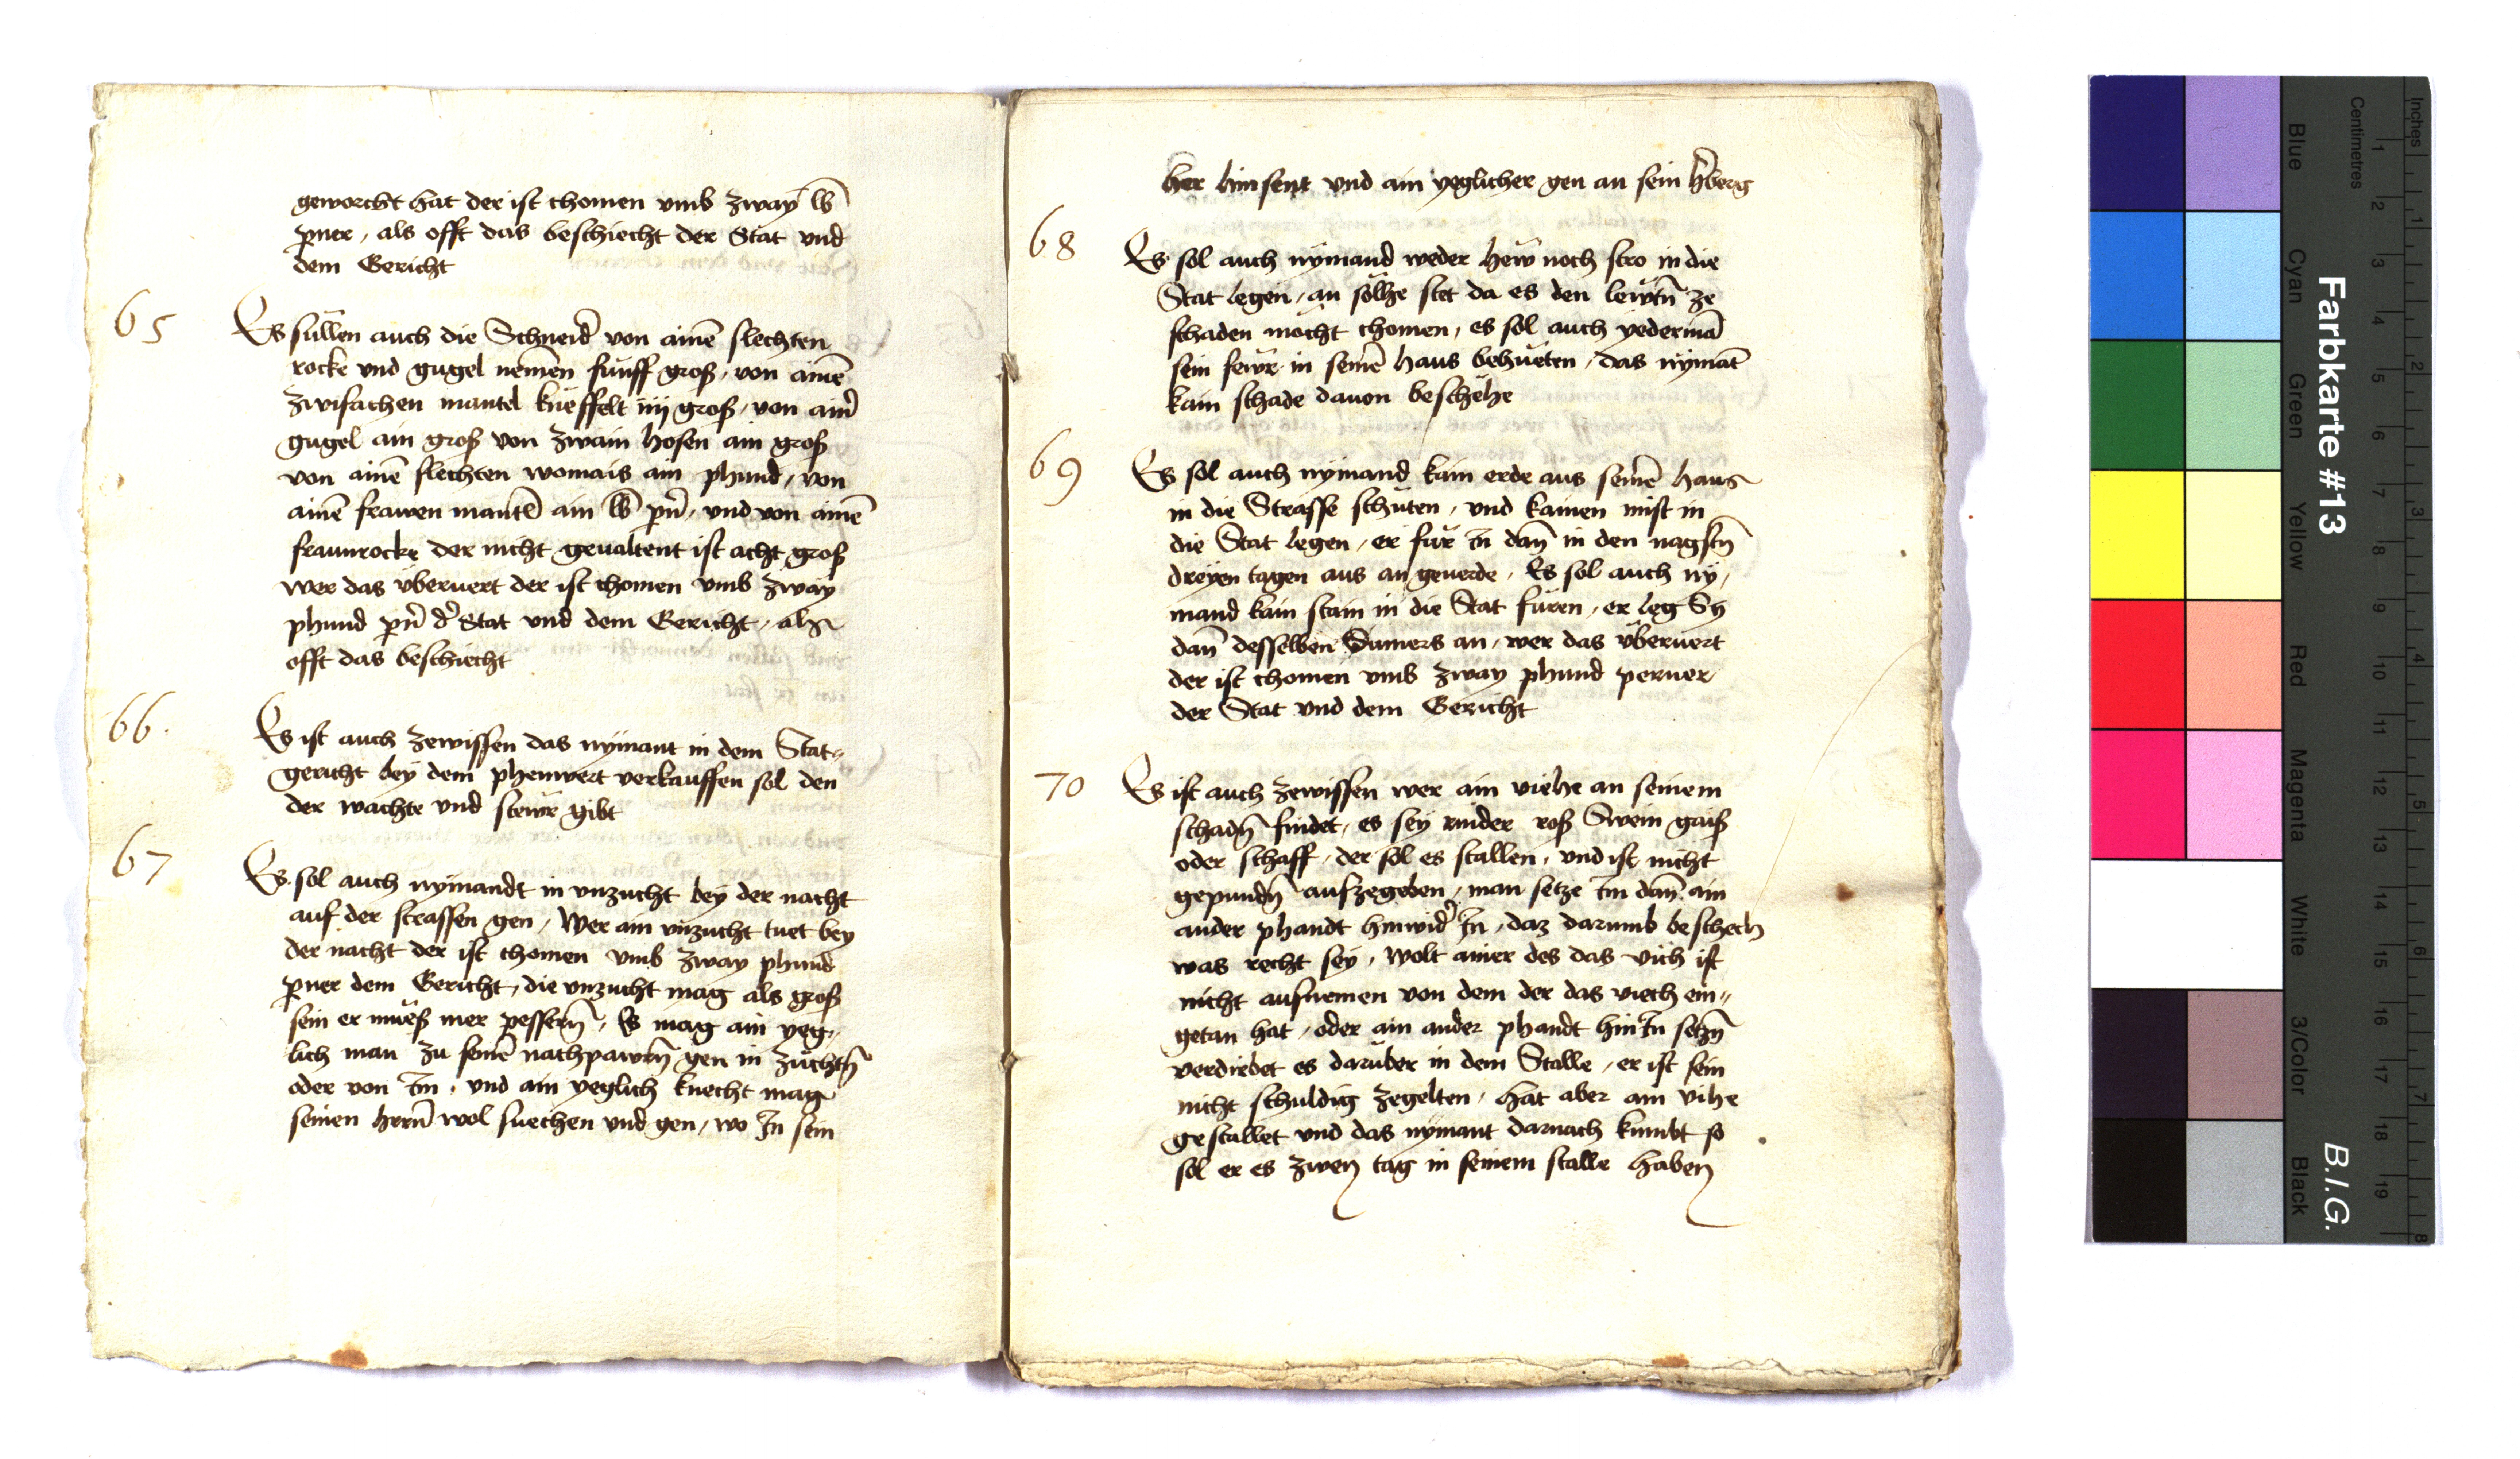 geworcht hat der ist chomen vmb zway lb
pner, als offt das beschiecht der Stat vnd
dem Gericht
65
Es sullen auch die Schneid̉ von ainē slechten
rocke vnd gugel nemen funff groß, von ainē
zwifachen mantel kneffelt iiij groß, von aīn̉
gugel ain groß von zwain hosen ain groß
von ainē slechten womais ain phund, von
ainē frawen mantl ain lb pn̄, vnd von ainē
fraunrocke der nicht geualtent ist acht groß
wer das v̈beruert der ist chomen vmb zway
phund pn̄ d̉ Stat vnd dem Gericht, als
offt das beschiecht
66.
Es ist auch zewissen das nymant in dem Stat„
gericht bey dem phenwert verkauffen sol den
der wachte vnd stewr gibt
67
Es sol auch nymandt in vnzucht bey der nacht
auf der strassen gen, Wer ain vnzucht tuet bey
der nacht der ist chomen vmb zway phund
pner dem Gericht, die vnzucht mag als groß
sein er mueß mer pessern̄, Es mag ain yeg„
lich man zu seinē nachpawrn̄ gen in zuchtn̄
oder von im, vnd ain yeglich knecht mag
seinen hern̄ wol suechen vnd gen, wo In sein
her hin sent vnd ain yeglicher gen an sein h̉berg
68
Es sol auch nymand weder hew noch stro in die
Stat legen, an solhe stet da es den lewtn̄ ze
schaden mocht chomen, es sol auch yedermā
sein fewr in seinē haus behueten, das nymāt
kain schade dauon beschehe
69
Es sol auch nymand kain erde aus seinē haus
in die Strasse schuten, vnd kainen mist in
die Stat legen, er fur in dan̄ in den nagstn̄
dreyen tagen aus an geuerde, Es sol auch ny„
mand kain stain in die Stat furen, er leg Sy
dan̄ desselben Sumers an, wer das v̈beruert
der ist chomen vmb zway phund perner
der Stat vnd dem Gericht
70
Es ist auch zewissen wer ain viehe an seinem
schadn̄ findet, es sey rinder roß Swein gaiß
oder schaff, der sol es stallen, vnd ist nicht
gepundn̄ aufzegeben, man setze im dan̄ ain
ander phandt hinwid̉ In, daz darumb beschech
was recht sey, wolt ainer des das vich ist
nicht aufnemen von dem der das viech ein„
getan hat, oder ain ander phandt hin In setzn̄
verdirbet es daruber in dem Stalle, er ist sein
nicht schuldig zegelten, hat aber ain vihe
gestallet vnd das nymant darnach kumbt so
sol er es zwen tag in seinem stalle haben
Farbkarte #13
B.I.G.
Centimetres
Inches
Blue
Cyan
Green
Yellow
Red
Magenta
White
3/Color
Black
1 2 3 4 5 6 7 8 9 10 11 12 13 14 15 16 17 18 19
1 2 3 4 5 6 7 8